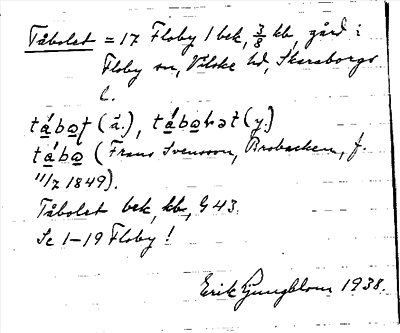 Tåbolet = 17 Floby 1 bek, 7/8 kb, gård i
Floby sn, Vilske hd, Skaraborgs
l.
tábot (ä.), tábolət (y.)
tábo (Frans Svensson, Brobacken, f.
11/7 1849).
Tåbolet bek, kb, G 43.
Se 1–19 Floby!
Erik Ljungblom 1938.